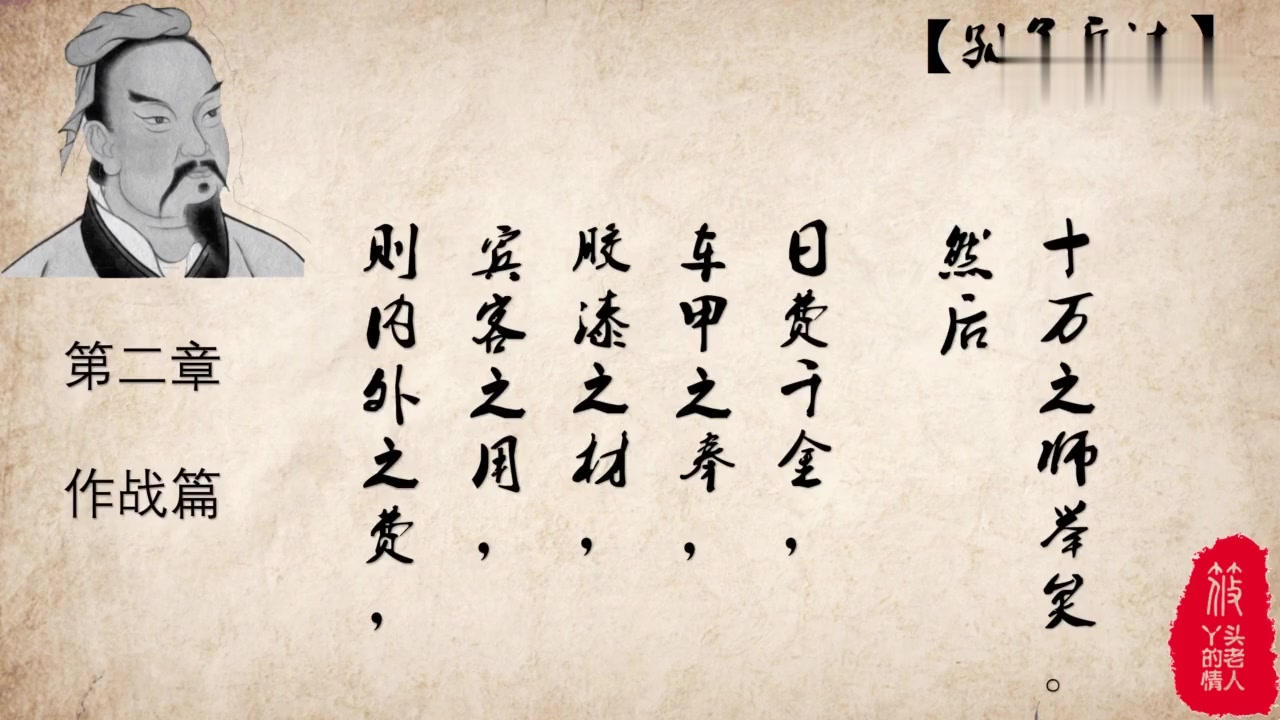 第二章
作战篇
则内外之费，
宾客之用，
胶漆之材，
车甲之奉，
日费千金，
然后
十万之师举矣。
筱
丫头
的老
情人